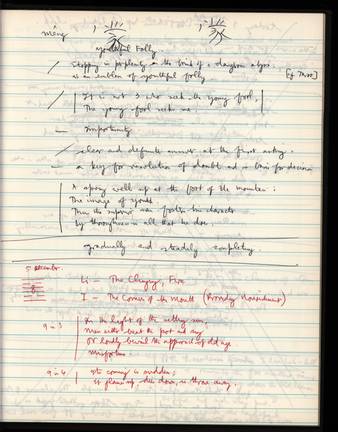 mêng
youthful Folly
Stopping in perplexity on the brink of a dangerous abyss
is an emblem of youthful folly.
It is not I who seek the young fool,
The young fool seeks me.
importunity
clear and definite answer at the first asking:
a key for resolution of doubt and a basis for decision
A spring wells up at the foot of the mountain:
The image of youth
Thus the superior man fosters his character
by thoroughness in all that he does.
gradually and steadily completing.
5 December.
Li – The Clinging, Fire
I – The Corners of the Mouth (Providing Nourishment)
9 in 3 In the light of the setting sun,
Men either beat the pot and sing
Or loudly bewail the approach of old age
Misfortune.
9 in 4. Its coming is sudden;
It flames up, dies down, is thrown away.